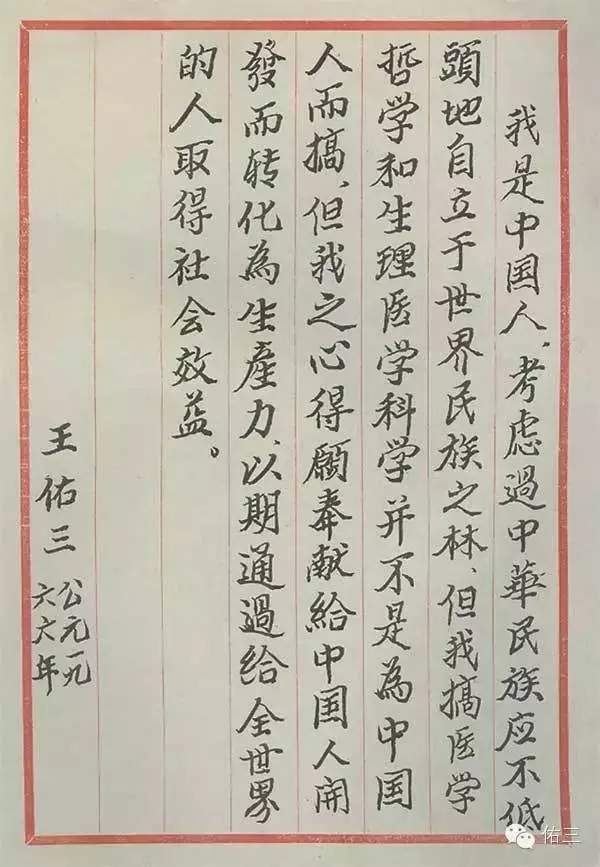 我是中国人、考虑過中華民族应不低
頭地自立于世界民族之林、但我搞医学
哲学和生理医学科学并不是為中国
人而搞、但我之心得願奉献給中国人開
發而转化為生產力、以期通過給全世界
的人取得社会效益。
王佑三
公元一九
六六年
佑三